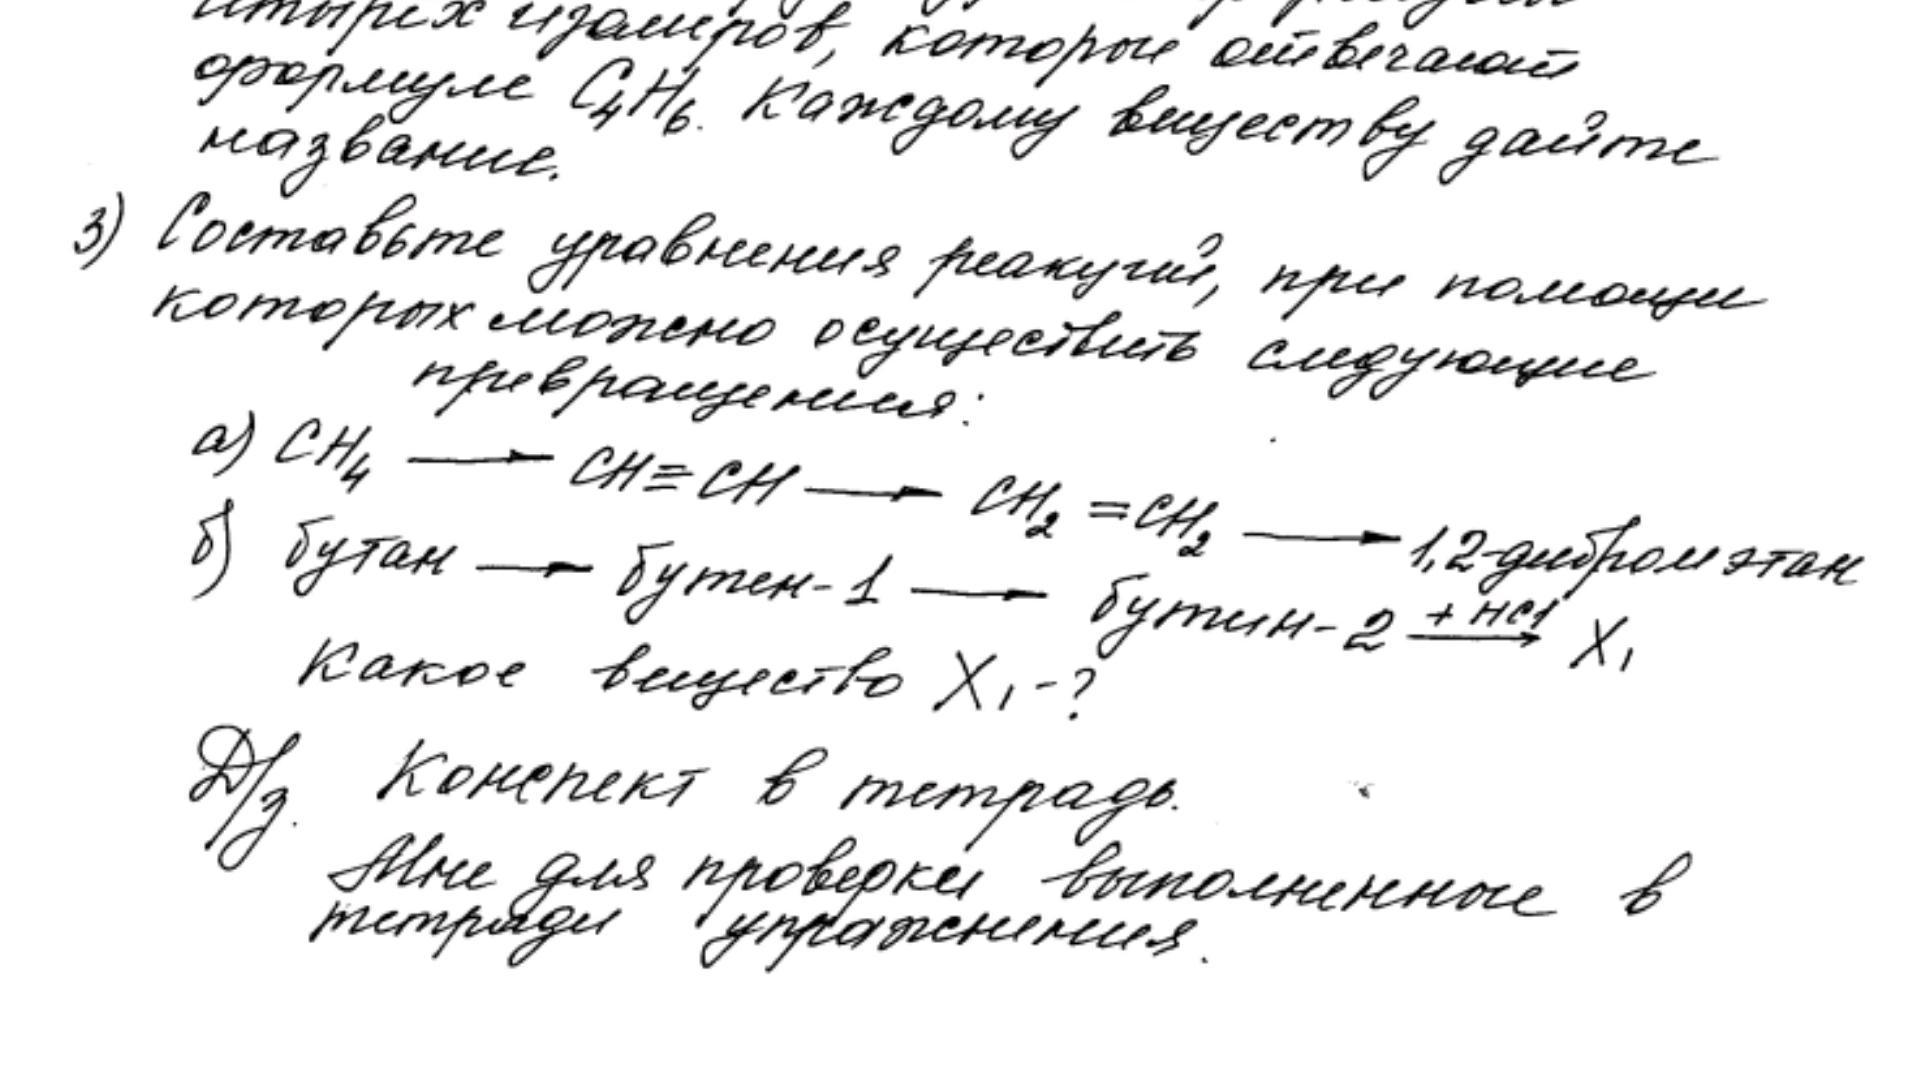 четырёх изомеров, которые отвечают
формуле C₄H₆. Каждому веществу дайте
название.
3) Составьте уравнения реакций, при помощи
которых можно осуществить следующие
превращения:
а) CH₄ → CH≡CH → CH₂=CH₂ → 1,2-дибромэтан
б) бутан → бутен-1 → бутин-2 +HCl → X₁
Какое вещество X₁-?
Д/з. Конспект в тетрадь.
Мне для проверки выполненные в
тетради упражнения.